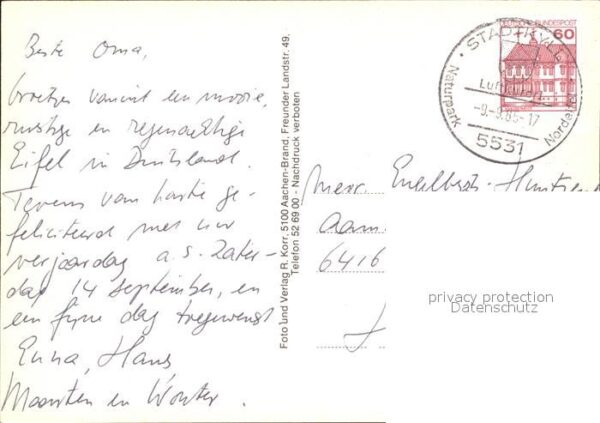 Beste Oma,
Groetjes vanuit een mooie,
rustige en regenachtige
Eifel in Duitsland.
Tevens van harte ge-
feliciteerd met uw
verjaardag a.s. Zater-
dag 14 september, en
een fijne dag toegewenst
Enna, Hans
Maarten en Wouter.
Foto und Verlag R. Korr, 5100 Aachen-Brand, Freunder Landstr. 49,
Telefon 52 69 00 - Nachdruck verboten
DEUTSCHE BUNDESPOST
60
STADTKYLL
Naturpark
Nordeifel
-9.-9.85-17
5531
Mevr. Engelbert-
6416
privacy protection
Datenschutz